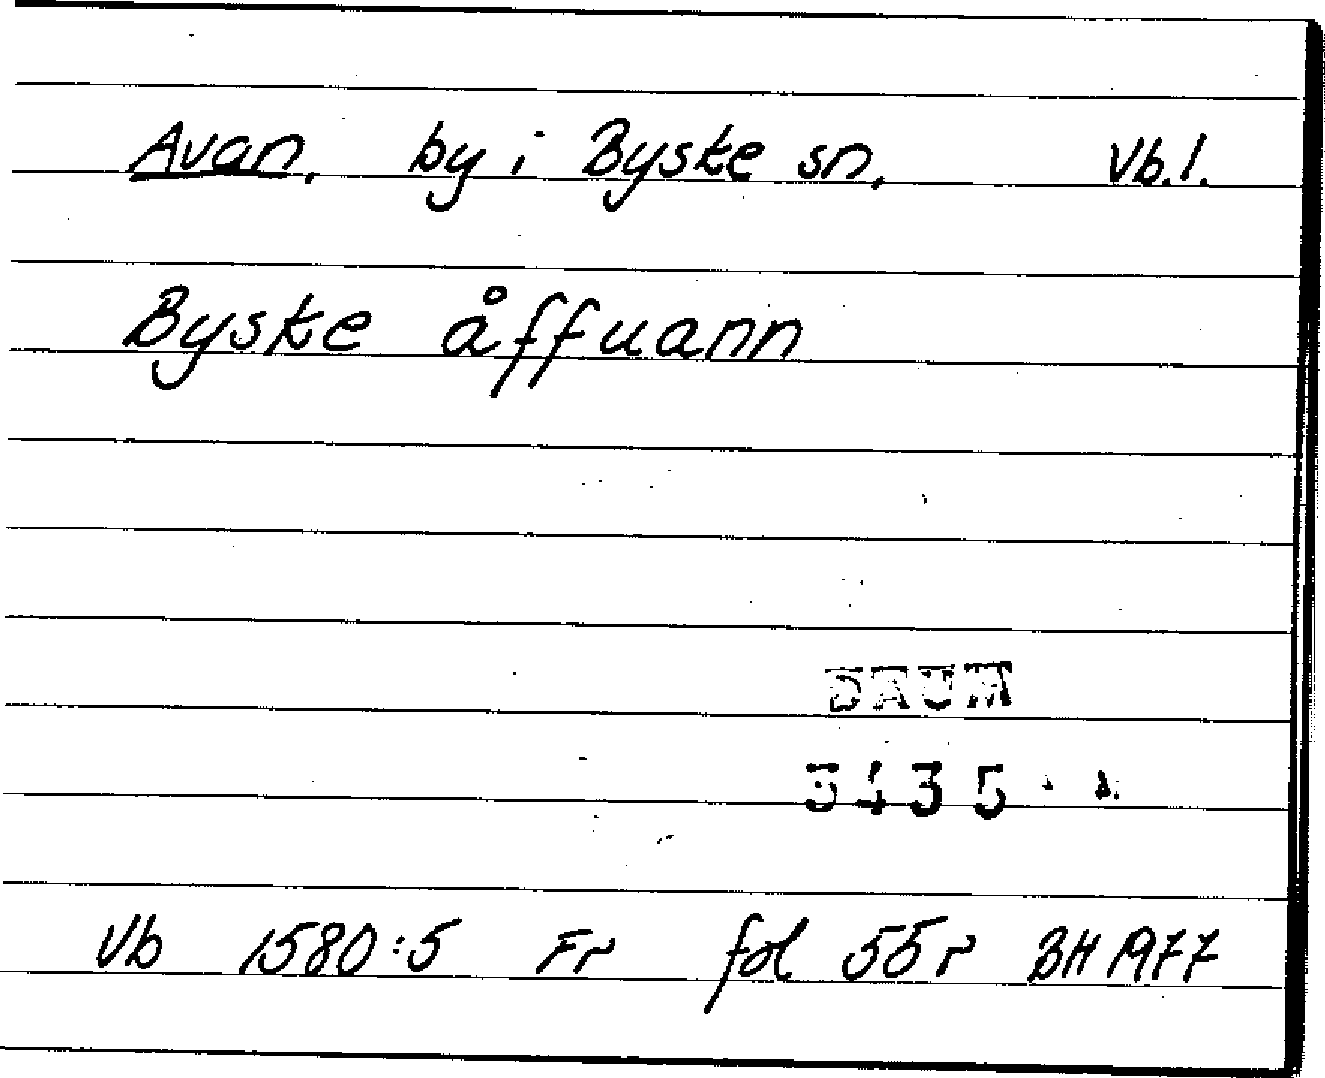 Avan, by i Byske sn, Vb.l.
Byske åffuann
DAUM
3435
Vb 1580:5 Fr fol 55r BH 1977